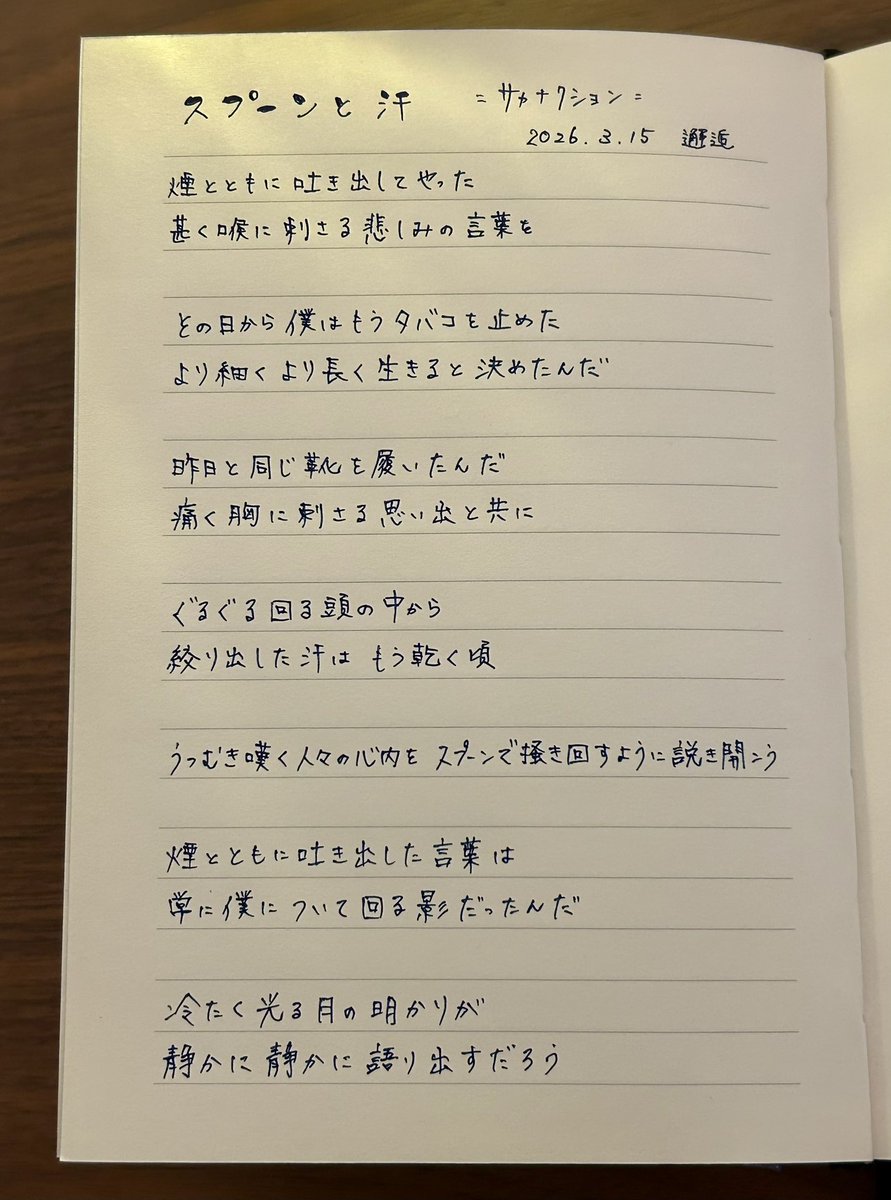 スプーンと汗 =サカナクション=
2026.3.15 邂逅
煙とともに吐き出してやった
甚く喉に刺さる悲しみの言葉を
その日から僕はもうタバコを止めた
より細くより長く生きると決めたんだ
昨日と同じ靴を履いたんだ
痛く胸に刺さる思い出と共に
ぐるぐる回る頭の中から
絞り出した汗は もう乾く頃
うつむき嘆く人々の心内を スプーンで掻き回すように説き開こう
煙とともに吐き出した言葉は
常に僕について回る影だったんだ
冷たく光る月の明かりが
静かに静かに語り出すだろう